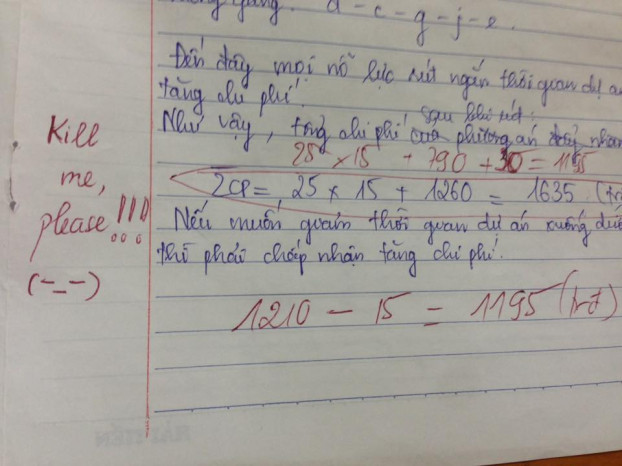 d - c - g - j - e.
Đến đây mọi nỗ lực rút ngắn thời gian dự a
tăng chi phí.
sau khi rút:
Như vậy, tổng chi phí của phương án nhan
25 × 15 + 790 + 30 = 1195
ΣCP = 25 × 15 + 1260 = 1635 (tr
Nếu muốn giảm thời gian dự án xuống dưới
thì phải chấp nhận tăng chi phí.
1210 - 15 = 1195 (trđ)
Kill
me,
please!!!
(-_-)